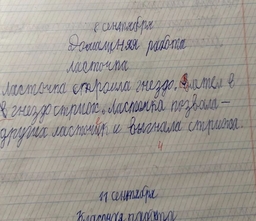 8 сентября
Домашняя работа
ласточка
Ласточка строила гнездо. влетел в
гнездо стриж. Ласточка позвала
других ласточек и выгнала стрижа.
4
11 сентября
Классная работа